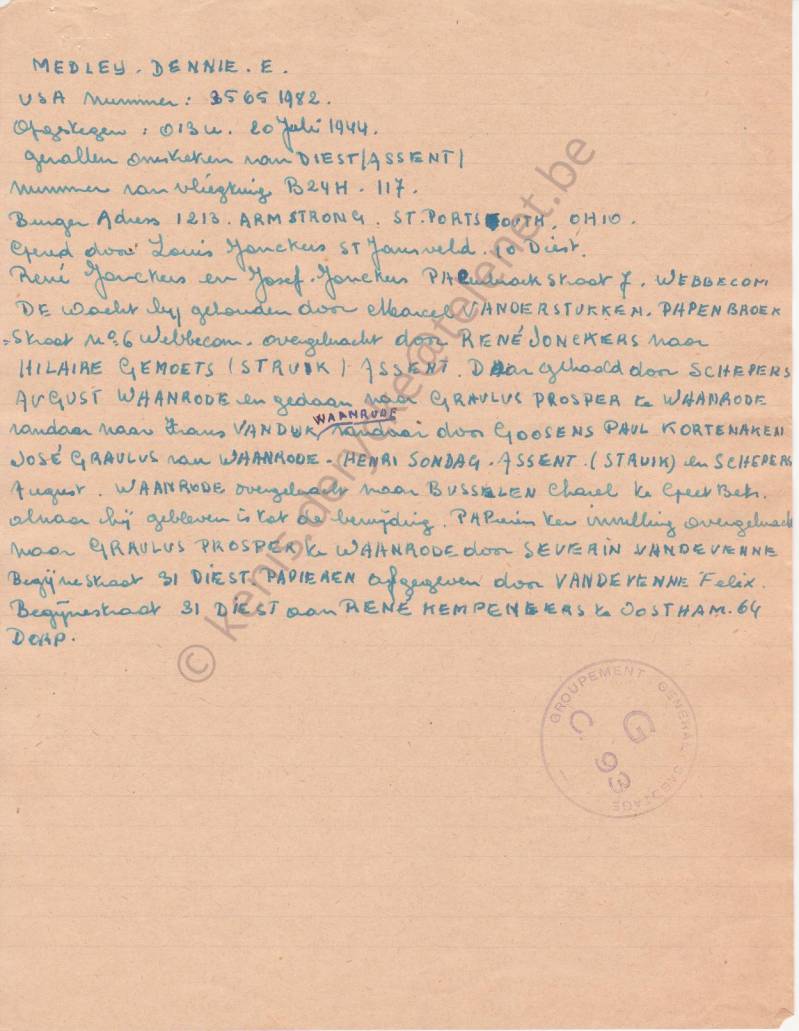 MEDLEY. DENNIE. E.
USA nummer: 35651982.
Opgestegen: 013u. 20 Juli 1944.
gevallen omstreken van DIEST/ASSENT/
nummer van vliegtuig B24H. 117.
Burger Adress 1213. ARMSTRONG. ST. PORTSMOUTH. OHIO.
Gered door Louis Jonckers ST Jansveld 10 Diest.
René Jonckers en Josef. Jonckers straat 7. WEBBECOM
DE wacht bij gehouden door Marcel VANDERSTUKKEN. PAPENBROEK
=straat no 6 Webbecom. overgebracht door RENÉ JONCKERS naar
HILAIRE GEMOETS (STRUIK) ASSENT. DAar gehaald door SCHEPERS
AUGUST WAANRODE en gedaan naar GRAULUS PROSPER te WAANRODE
vandaar naar Frans VANDIJK WAANRODE vandaar door GOOSENS PAUL KORTENAKEN
JOSÉ GRAULUS van WAANRODE - HENRI SONDAG. ASSENT. (STRUIK) en SCHEPERS
August. WAANRODE overgebracht naar BUSSELEN Charel te Geet Bets.
alwaar hij gebleven is tot de bevrijding. PAPieren ter invulling overgebracht
naar GRAULUS PROSPER te WAANRODE door SEVERIN VANDEVENNE
Begijnestraat 31 DIEST. PAPIEREN afgegeven door VANDEVENNE Felix.
Begijnestraat 31 DIEST aan RENÉ KEMPENEERS te OOSTHAM. 64
DORP.
GROUPEMENT GENERAL SABOTAGE
G
C
93
© kenis.denyske@telenet.be